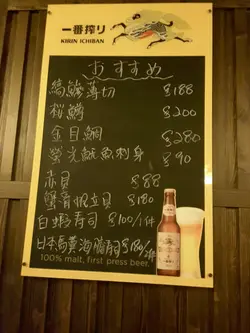 一番搾り
KIRIN ICHIBAN
おすすめ
縞鰺薄切 $188
桜鱒 $200
金目鯛 $280
螢光魷魚刺身 $90
赤貝 $88
蟹膏帆立貝 $180
白蝦寿司 $100/1件
日本馬糞海膽寿司 $180/2件
100% malt, first press beer.